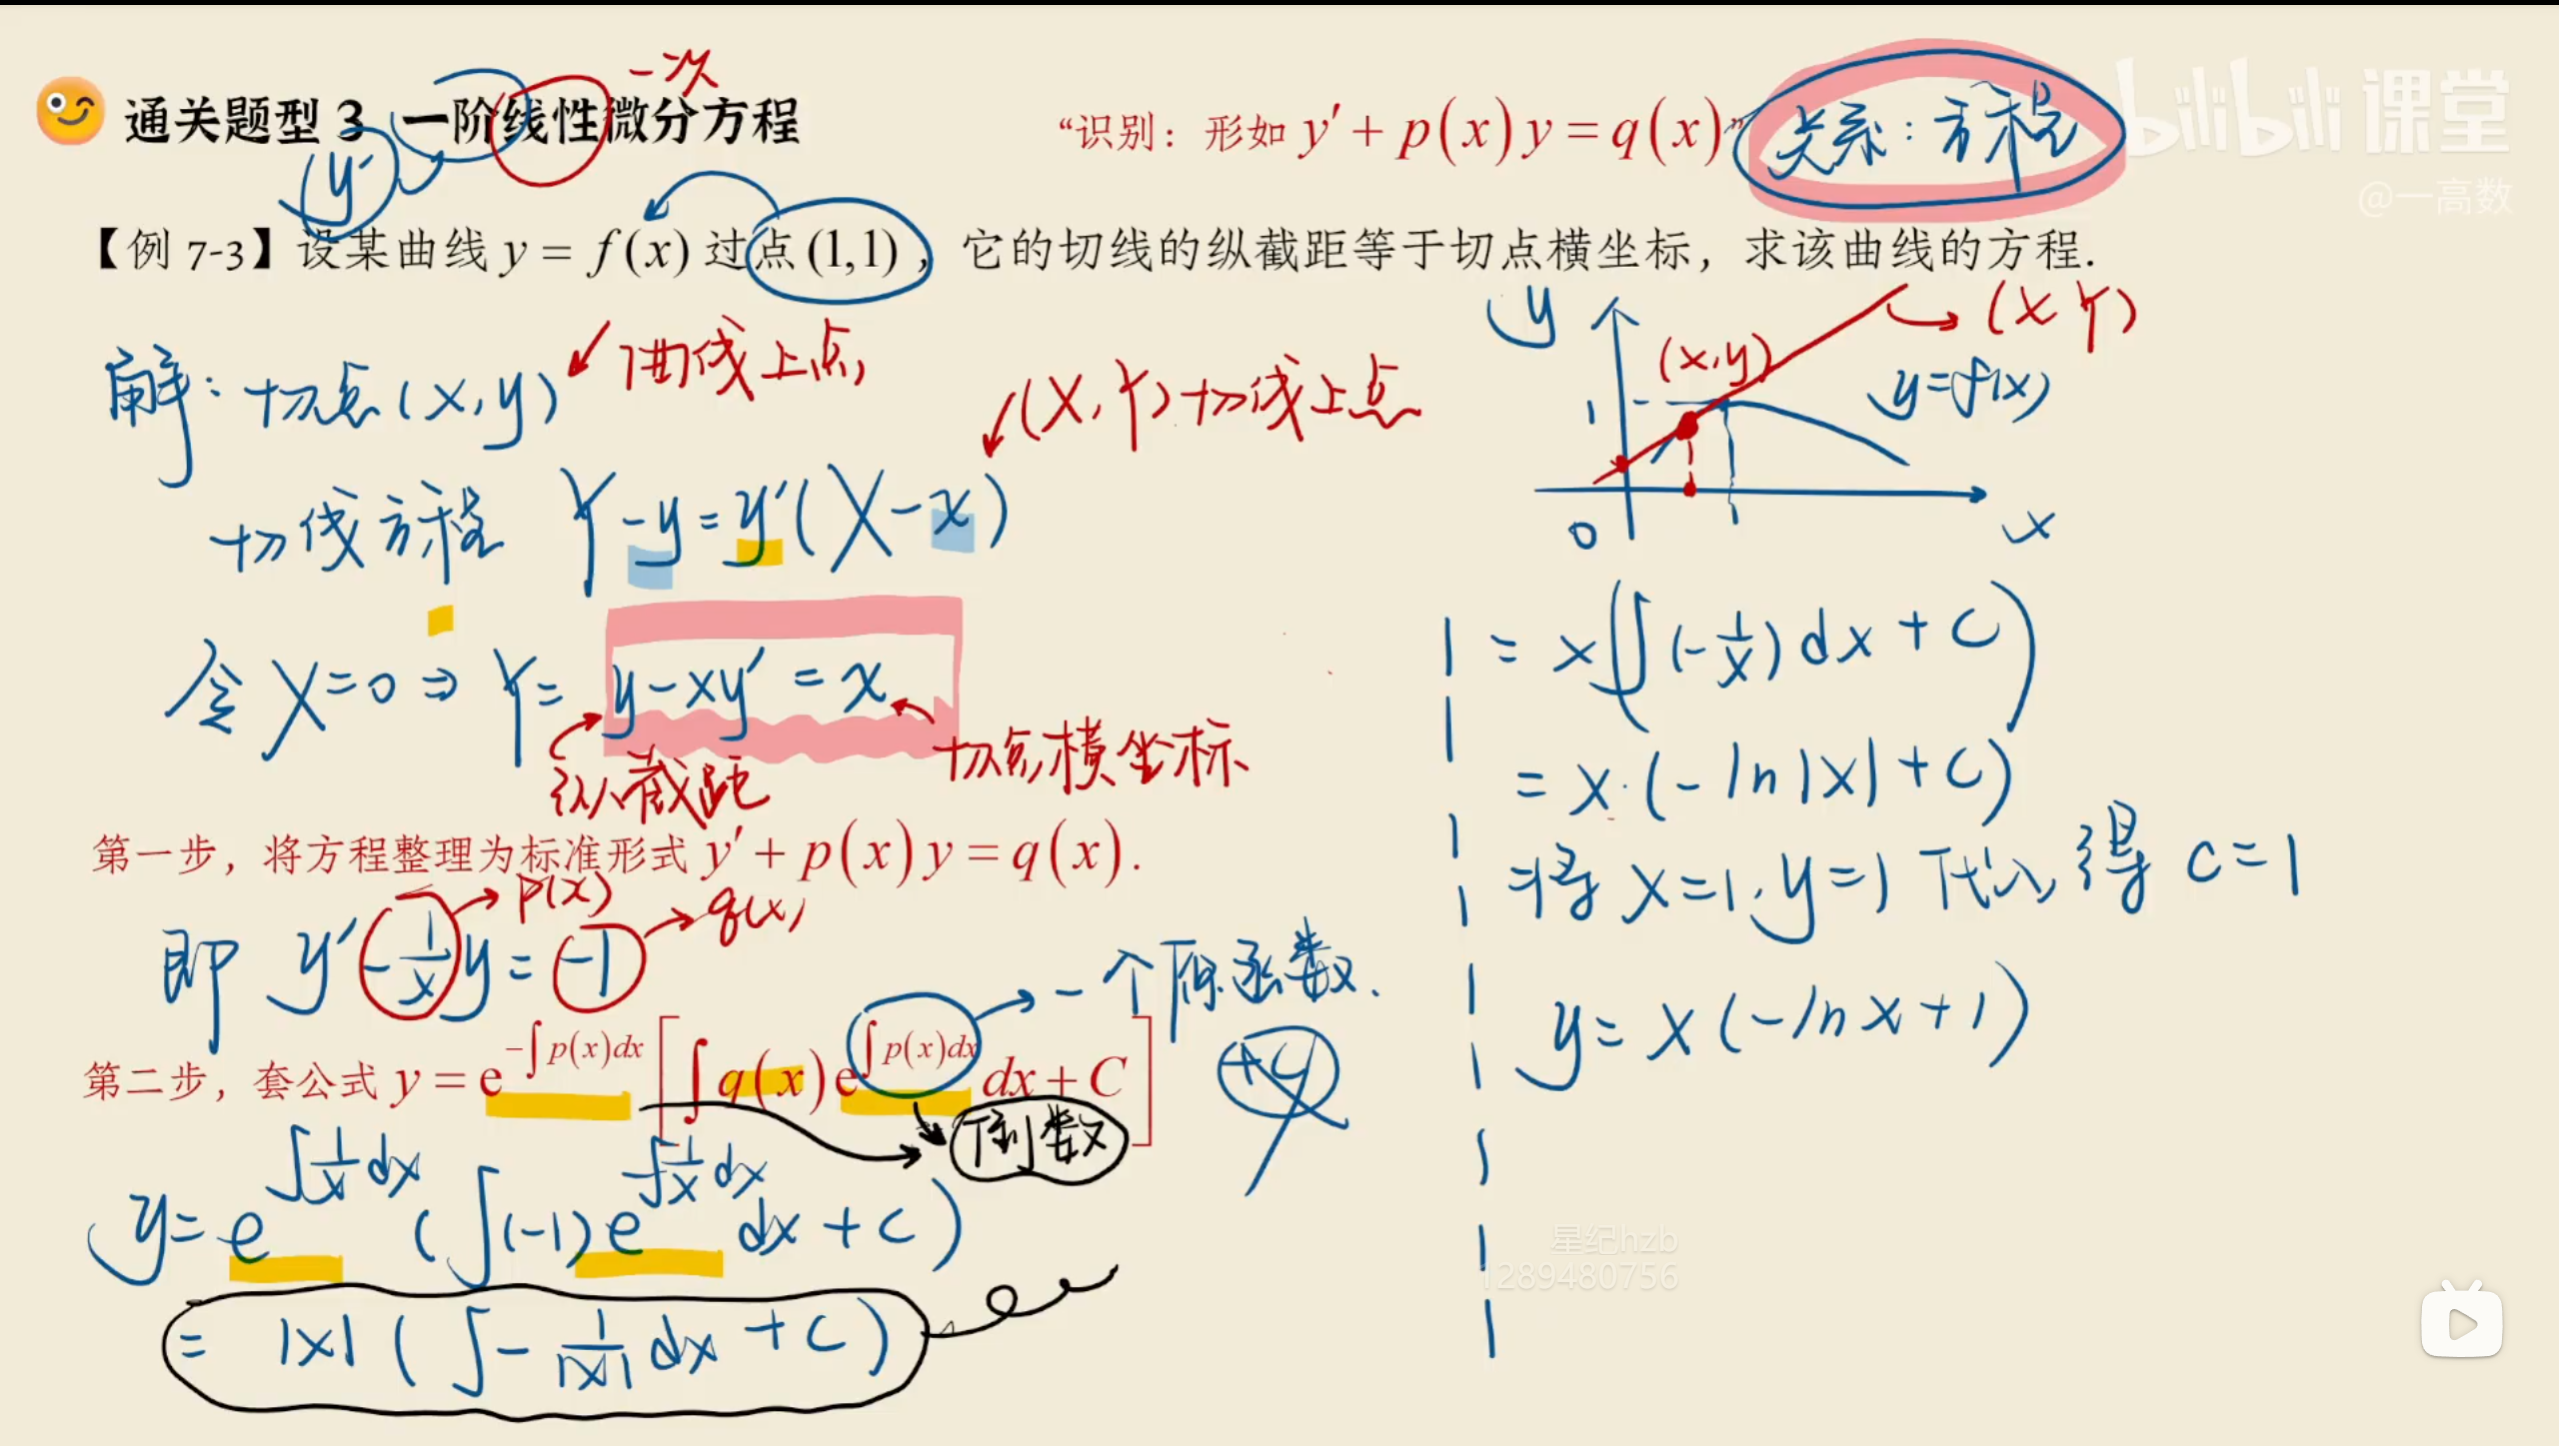 通关题型 3 一阶线性微分方程
一次
y′
“识别：形如 y′ + p(x) y = q(x)”
关系：方程
bilibili 课堂
@一高数
【例 7-3】设某曲线 y = f(x) 过点 (1,1)，它的切线的纵截距等于切点横坐标，求该曲线的方程.
解：切点(x,y)
曲线上点
(X,Y)切线上点
切线方程 Y-y=y′(X-x)
令X=0⇒Y= y-xy′=x
纵截距
切点横坐标
第一步，将方程整理为标准形式 y′ + p(x) y = q(x).
即 y′-1/x y=-1
p(x)
q(x)
第二步，套公式 y = e^{-∫p(x)dx} [∫q(x) e^{∫p(x)dx} dx + C]
一个原函数.
+C
倒数
y=e^{∫1/x dx} (∫(-1)e^{-∫1/x dx} dx+C)
= |x| (∫-1/|x| dx+C)
y
(x,y)
(X Y)
y=f(x)
1
0
1
x
=x(∫(-1/x)dx+C)
=x·(-ln|x|+C)
将x=1,y=1代入得 C=1
y=x(-lnx+1)
星纪hzb
1289480756